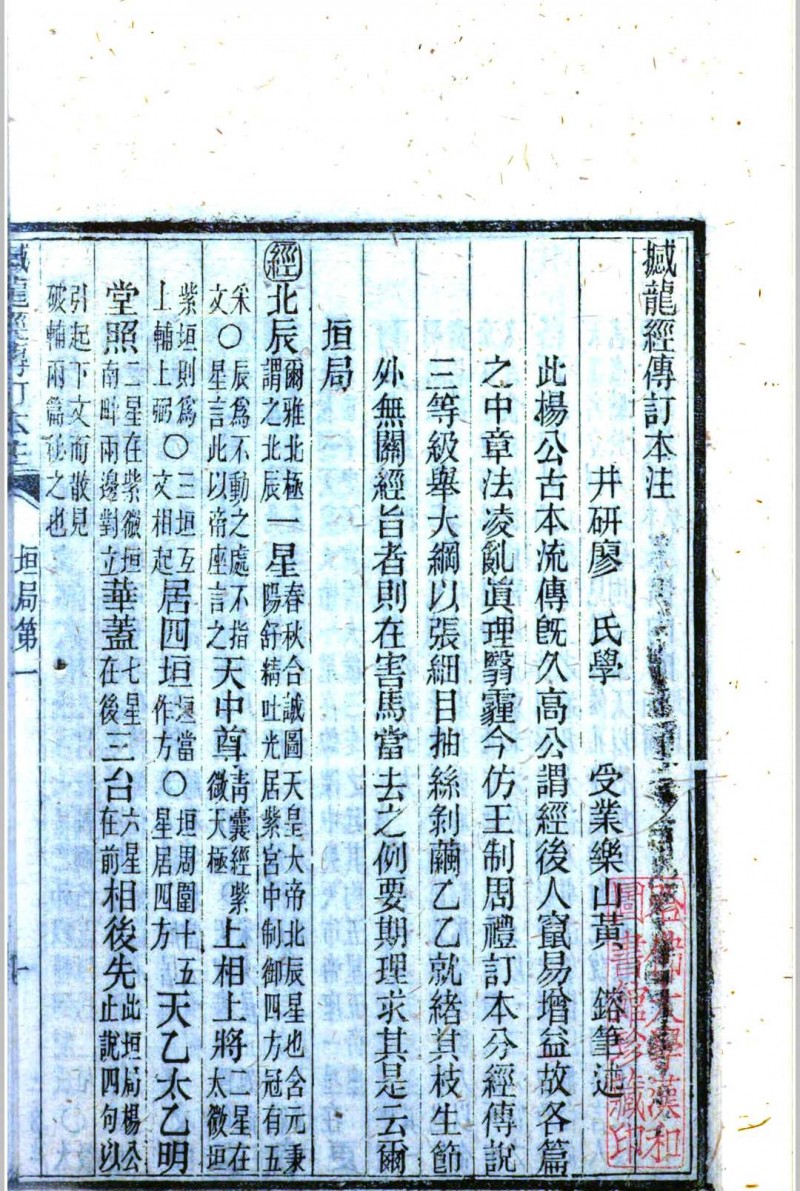 撼龍經傳訂本注
哈佛大學漢和
圖書館珍藏印
井研廖 氏學 受業樂山黃 鎔筆述
此楊公古本流傳旣久高公謂經後人竄易增益故各篇
之中章法凌亂眞理翳霾今仿王制周禮訂本分經傳說
三等級舉大綱以張細目抽絲剝繭乙乙就緒其枝生節
外無關經旨者則在害馬當去之例要期理求其是云爾
垣局
經北辰爾雅北極謂之北辰一星春秋合誠圖天皇大帝北辰星也含元秉陽舒精吐光居紫宮中制御四方冠有五
采〇辰爲不動之處不指文〇星言此以帝座言之天中尊青囊經紫微天極上相上將二星在太微垣
紫垣則爲〇三垣互上輔上弼〇文相起居四垣垣當〇垣周圍十五作方〇星居四方天乙太乙明
堂照二星在紫微垣南畔兩邊對立華蓋七星在後三台六星在前相後先此垣局楊公止說四句以
引起下文而散見破輔兩篇之也
撼龍經傳訂本注 垣局第一